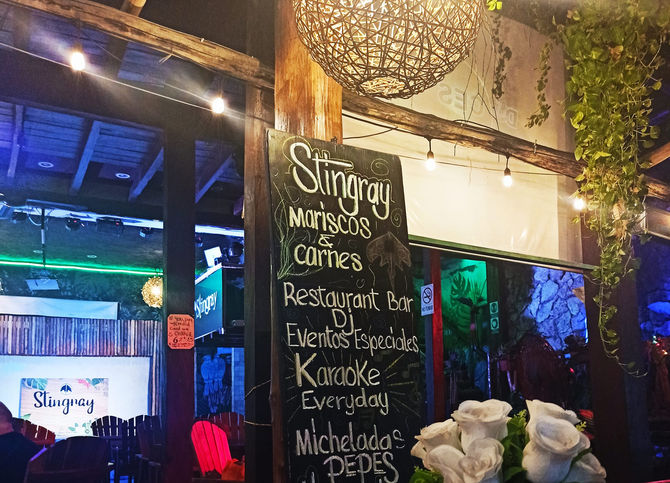 Stingray
MARISCOS
&
carnes
Restaurant Bar
Dj
Eventos Especiales
Karaoke
Everyday
Micheladas
PEPES
Stingray
Stingray